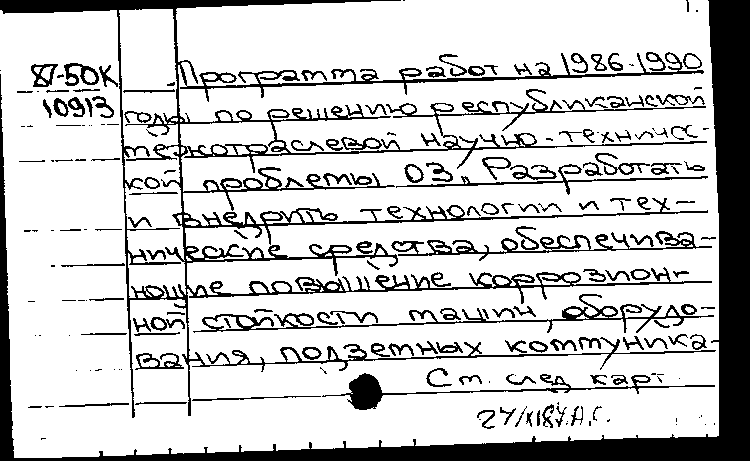 1.
87-50К Программа работ на 1986-1990
10913 годы по решению республиканской
межотраслевой научно-техничес-
кой проблемы 03 „Разработать
и внедрить технологии и тех-
нические средства, обеспечива-
ющие повышение коррозион-
ной стойкости машин, оборудо-
вания, подземных коммуника-
См. след карт.